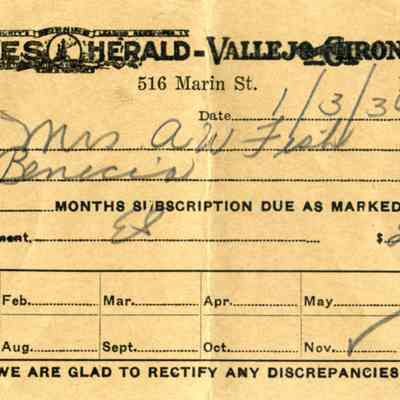 ES HERALD - VALLEJO CHRON
516 Marin St.
Date 1/3/3
Mrs A W Fish
Benecia
MONTHS SUBSCRIPTION DUE AS MARKED
ment, $
Feb. Mar. Apr. May
Aug. Sept. Oct. Nov.
WE ARE GLAD TO RECTIFY ANY DISCREPANCIES